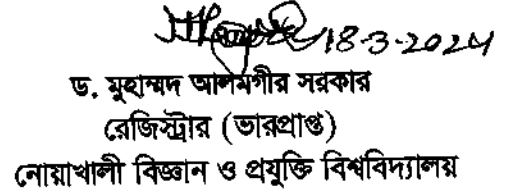 18-3-2024
ড. মুহাম্মদ আলমগীর সরকার
রেজিস্ট্রার (ভারপ্রাপ্ত)
নোয়াখালী বিজ্ঞান ও প্রযুক্তি বিশ্ববিদ্যালয়